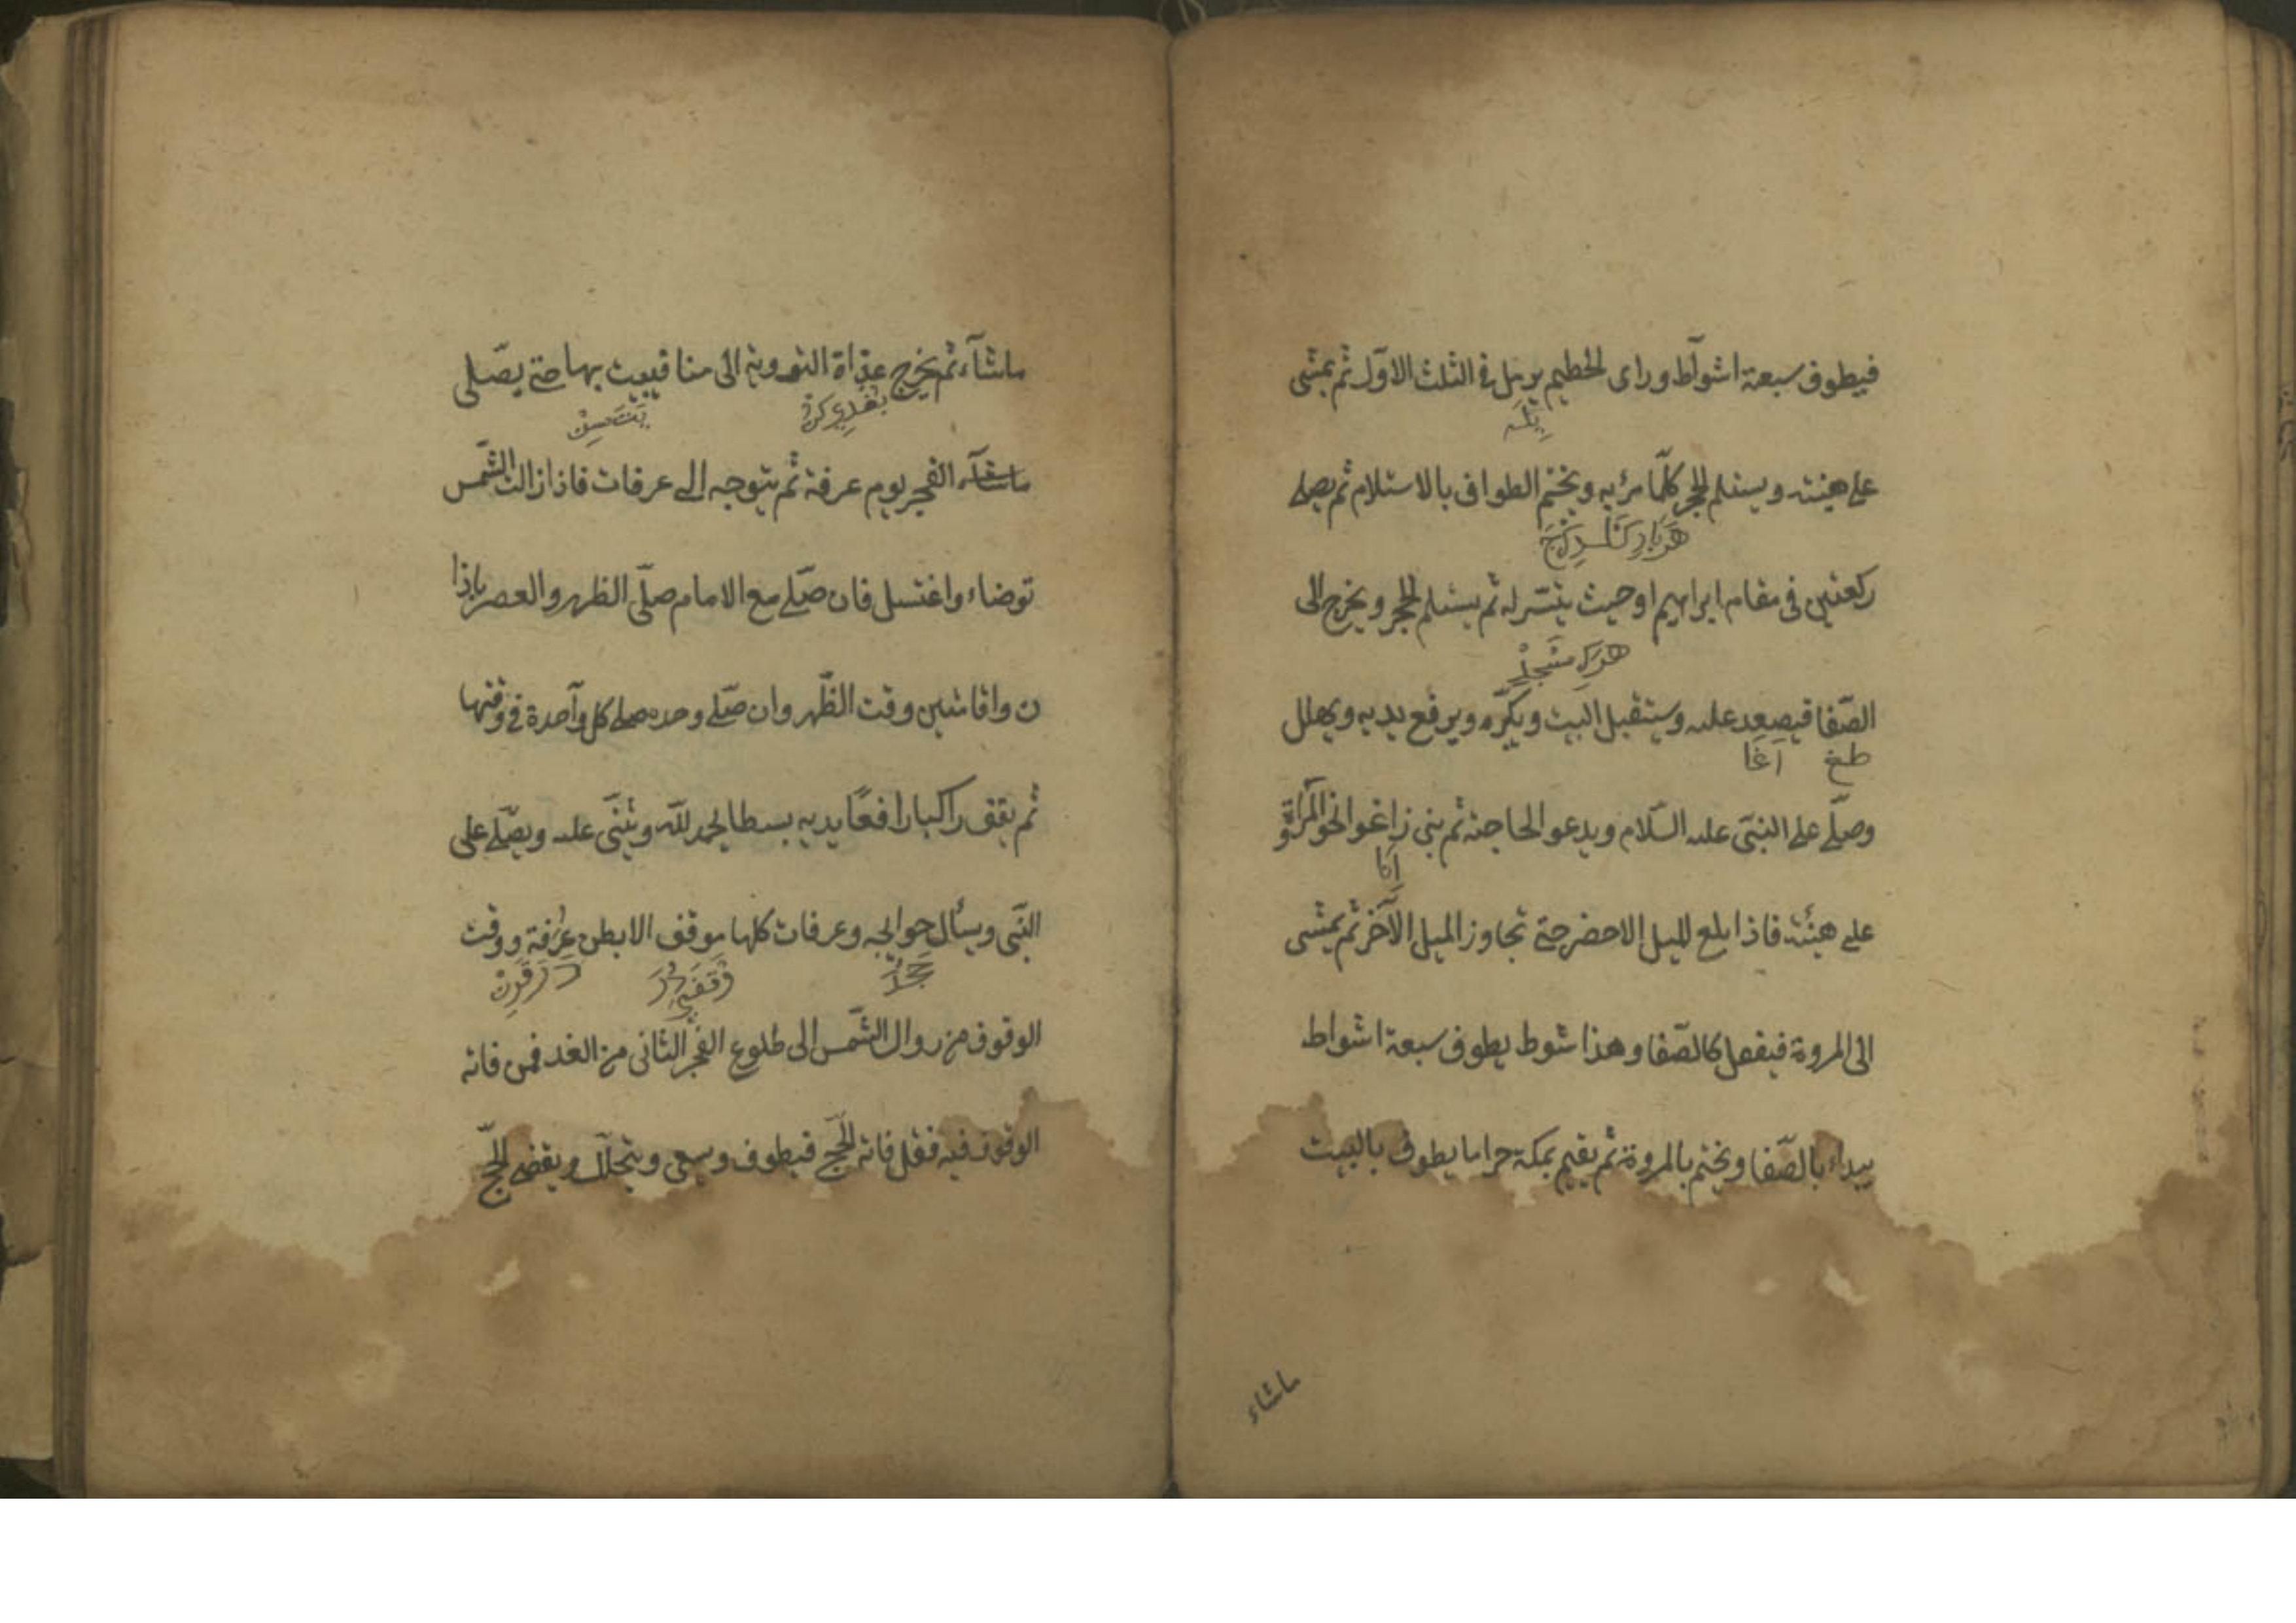 فيطوف سبعة اشواط وراى الحطيم يرمل فى الثلث الاول ثم يمشى
على هينته ويستلم الحجر كلّما مرّ به ويختم الطواف بالاستلام ثم يصلى
ركعتين فى مقام ابراهيم او حيث يتسّر له ثم يستلم الحجر ويخرج الى
الصّفا فيصعد عليه وستقبل البيت ويكبّره ويرفع يديه ويهلل
طغ اغا
وصلّى على النبىّ عليه السّلام ويدعو الحاجته ثم
على هينته فاذا بلع الميل الاحضر حتى تجاوز الميل الآخر ثم يمشى
الى المروة فيفعل كالصّفا وهذا شوط يطوف سبعة اشواط
يبداء بالصّفا ويختم بالمروة ثم يقيم بمكة حراما يطوف بالبيت
ماشاء
ماشآء ثم يخرج غداة التروية الى منا فيبيت بها حتى يصّلى
ماشآء الفجر يوم عرفة ثم يتوجه الى عرفات فاذا زالت الشّمس
توضاء واغتسل فان صّلى مع الامام صلّى الظهر والعصر باذا
ن واقامتين وقت الظّهر وان صّلى وحده صلى كل وآحدة فى وقتها
ثم يقف راكبا رافعًا يديه بسطا يحمد للّه ويثنّى عليه ويصّلى على
النّبى ويسأل حوايجه وعرفات كلها موقف الا بطن عرفة ووقت
الوقوف من زوال الشّمس الى طلوع الفجر الثانى من الغد فمن فاته
الوقوف فيه فقل فاته الحّج فيطوف وسعى ويتحلّل ويقضى الحّج